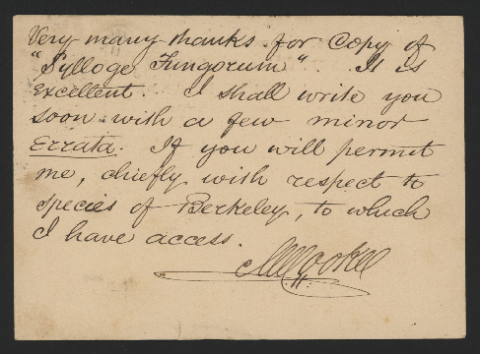 Very many thanks for Copy of
"Sylloge Fungorum". It is
excellent. I shall write you
soon with a few minor
Errata. If you will permit
me, chiefly with respect to
species of Berkeley, to which
I have access.
MCCooke